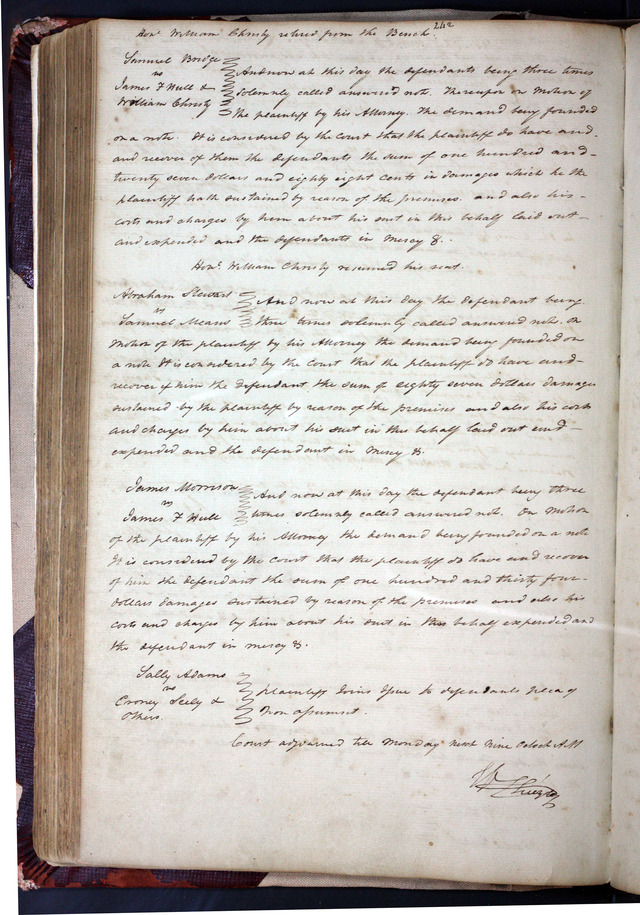 242
Honr. William Christy retired from the Bench.
Samuel Bridge
vs
James F Hull &
William Christy
And now at this day the defendants being three times
solemnly called answered not. Thereupon on Motion of
the plaintiff by his Attorney. The demand being founded
on a note. It is considered by the Court that the plaintiff do have and
and recover of them the defendants the sum of one hundred and
twenty seven dollars and eighty eight Cents in damages which he the
plaintiff hath sustained by reason of the premises. and also his
costs and charges by him about his suit in this behalf laid out
and expended and the defendants in mercy &.
Honr. William Christy resumed his seat.
Abraham Stewart
vs
Samuel Means
And now at this day the defendant being
three times solemnly called answered not. on
Motion of the plaintiff by his Attorney the demand being founded on
a note It is considered by the Court that the plaintiff do have and
recover of him the defendant the sum of eighty seven dollars damages
sustained by the plaintiff by reason of the premises and also his costs
and charges by him about his suit in this behalf laid out and
expended and the defendant in Mercy &.
James Morrison
vs
James F Hull
And now at this day the defendant being three
times solemnly called answered not. On Motion
of the plaintiff by his Attorney the demand being founded on a note
It is considered by the Court that the plaintiff do have and recover
of him the defendant the sum of one hundred and thirty four
dollars damages sustained by reason of the premises and also his
costs and charges by him about his suit in this behalf expended and
the defendant in mercy &.
Sally Adams
vs
Croney Seely &
Others.
plaintiff Joins Issue to defendants plea of
Non assumsit.
Court adjourned till Monday next Nine Oclock AM